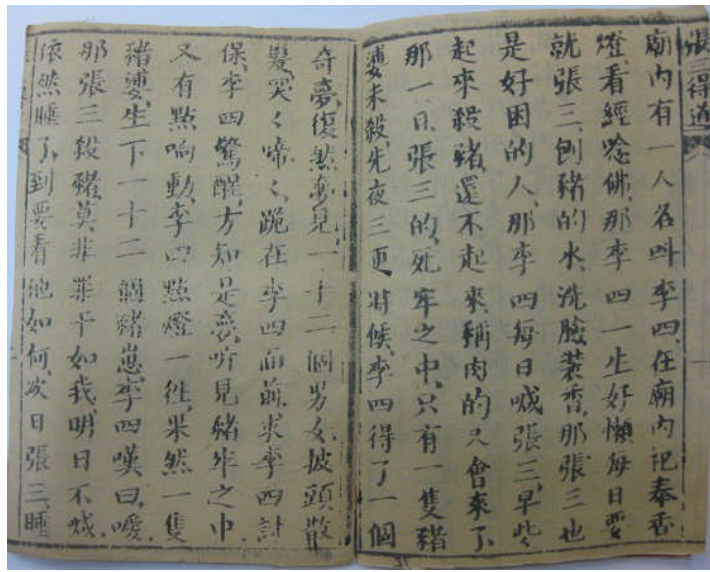 張三得道
廟内有一人名叫李四,在廟内祀奉香
燈,看經唸佛,那李四一生好懶每日要
就張三刨豬的水,洗臉裝香,那張三也
是好困的人,那李四每日喊張三,早些
起來殺豬,還不起來,稱肉的又會來了,
那一日,張三的,死牢之中,只有一隻豬
婆未殺,先夜三更時候,李四得了一個
奇夢,復然夢見,一十二個男女,披頭散
髮,哭々啼々,跪在李四面前,求李四討
保,李四驚醒,方知是夢,听見豬牢之中
又有點响動,李四點燈一徃,果然一隻
豬婆,生下一十二個豬崽,李四嘆曰,嗳,
那張三殺豬,莫非業干如我,明日不喊,
依然睡了,到要看他如何,次日張三,睡